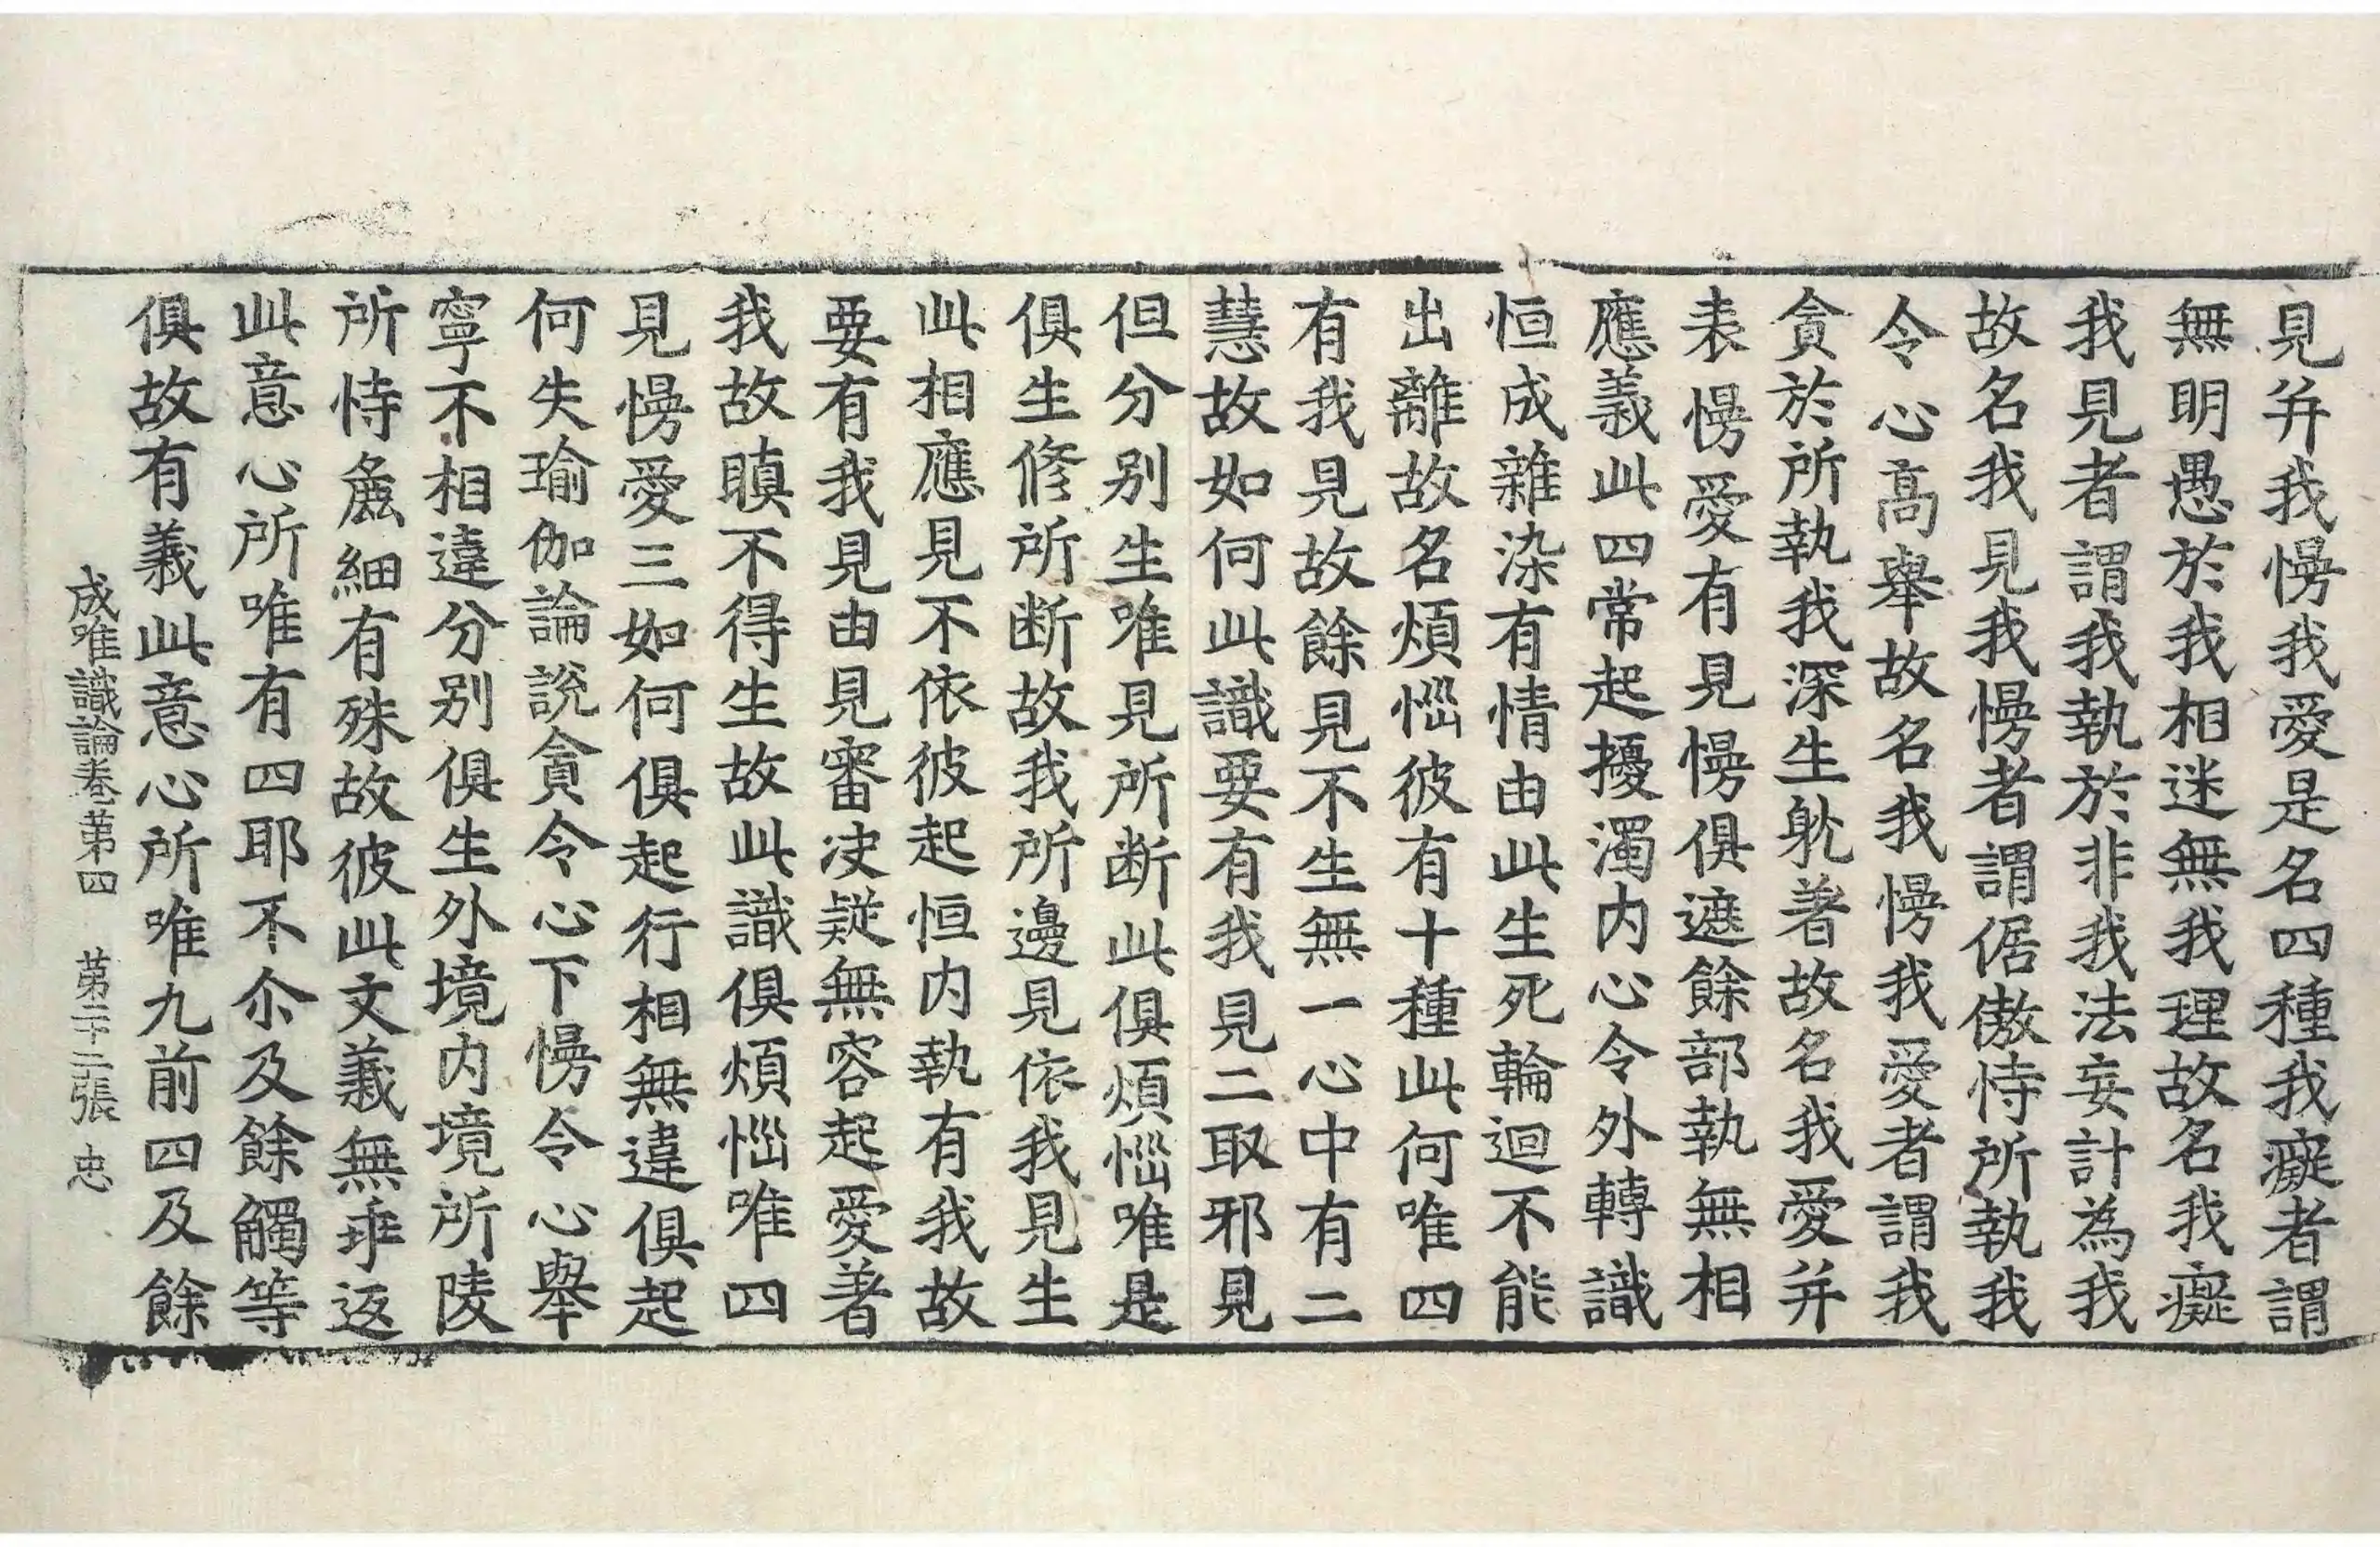 見并我慢我愛是名四種我癡者謂
無明愚於我相迷無我理故名我癡
我見者謂我執於非我法妄計為我
故名我見我慢者謂倨傲恃所執我
令心高舉故名我慢我愛者謂我
貪於所執我深生躭著故名我愛并
表慢愛有見慢俱遮餘部執無相
應義此四常起擾濁内心令外轉識
恒成雜染有情由此生死輪迴不能
出離故名煩惱彼有十種此何唯四
有我見故餘見不生無一心中有二
慧故如何此識要有我見二取邪見
但分别生唯見所断此俱煩惱唯是
俱生修所断故我所邊見依我見生
此相應見不依彼起恒内執有我故
要有我見由見審决疑無容起愛著
我故瞋不得生故此識俱煩惱唯四
見慢愛三如何俱起行相無違俱起
何失瑜伽論說貪令心下慢令心舉
寧不相違分别俱生外境内境所陵
所恃麁細有殊故彼此文義無乖返
此意心所唯有四耶不尒及餘觸等
俱故有義此意心所唯九前四及餘
成唯識論卷第四 第二十二張 忠